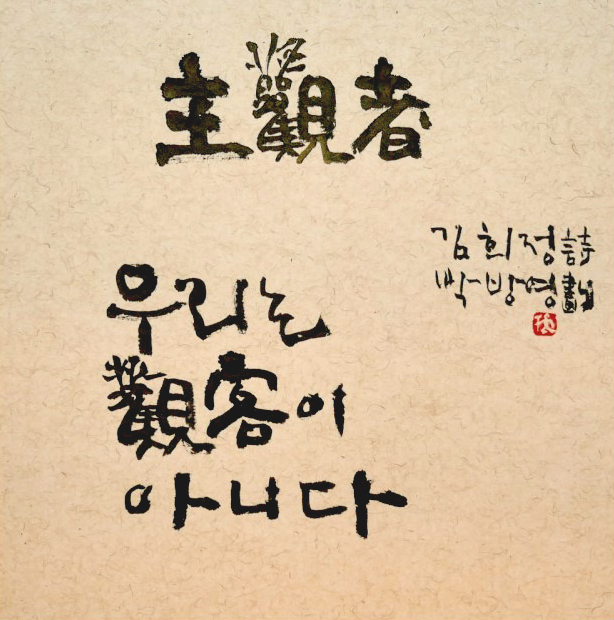 主觀者
김희정詩
박방영畵
우리는
觀客이
아니다